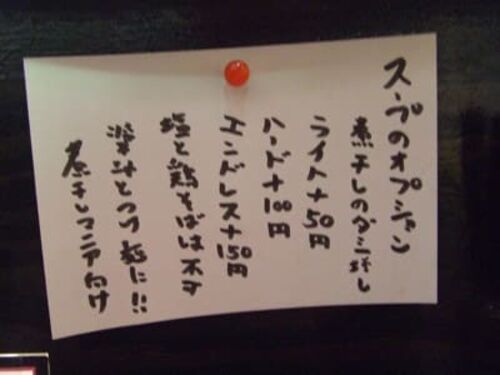 スープのオプション
煮干しのダシ増し
ライト+50円
ハード+100円
エンドレス+150円
塩と鶏そばは不可
濃汁とつけ蕎に!!
煮干しマニア向け